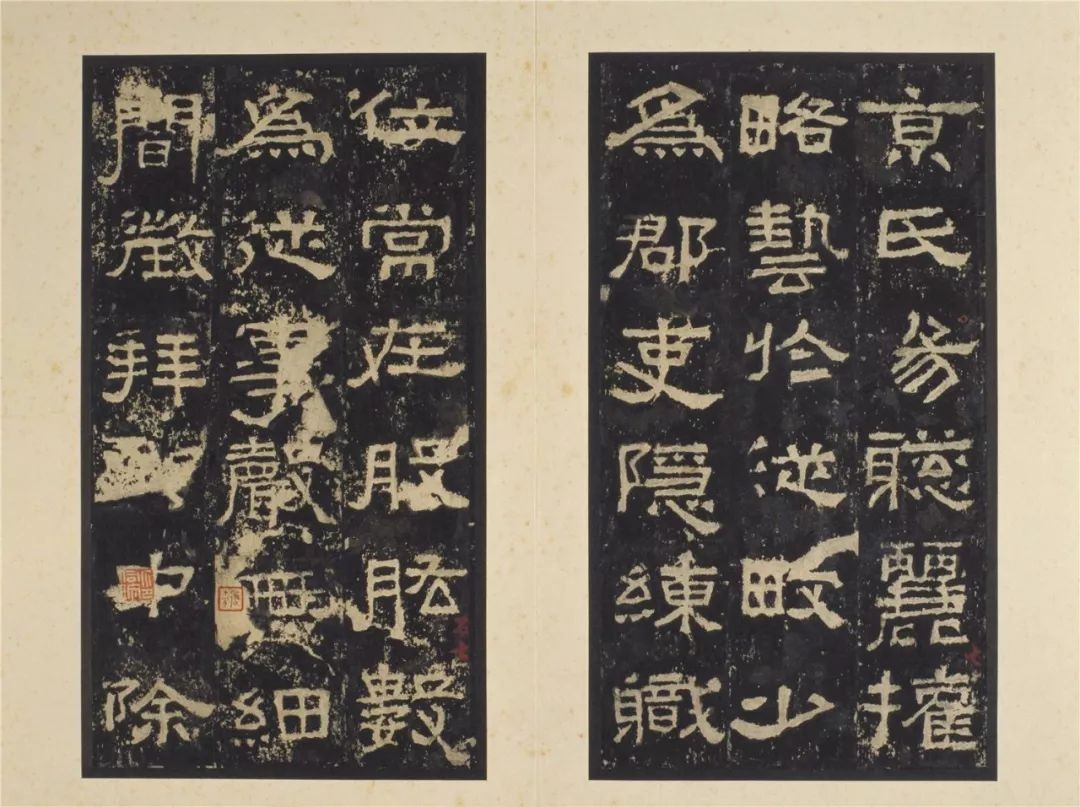 京氏易聦麗權
略藝於從畋少
為郡吏隱練職
位常在股肱數
為從事聲無細
間徵拜中除